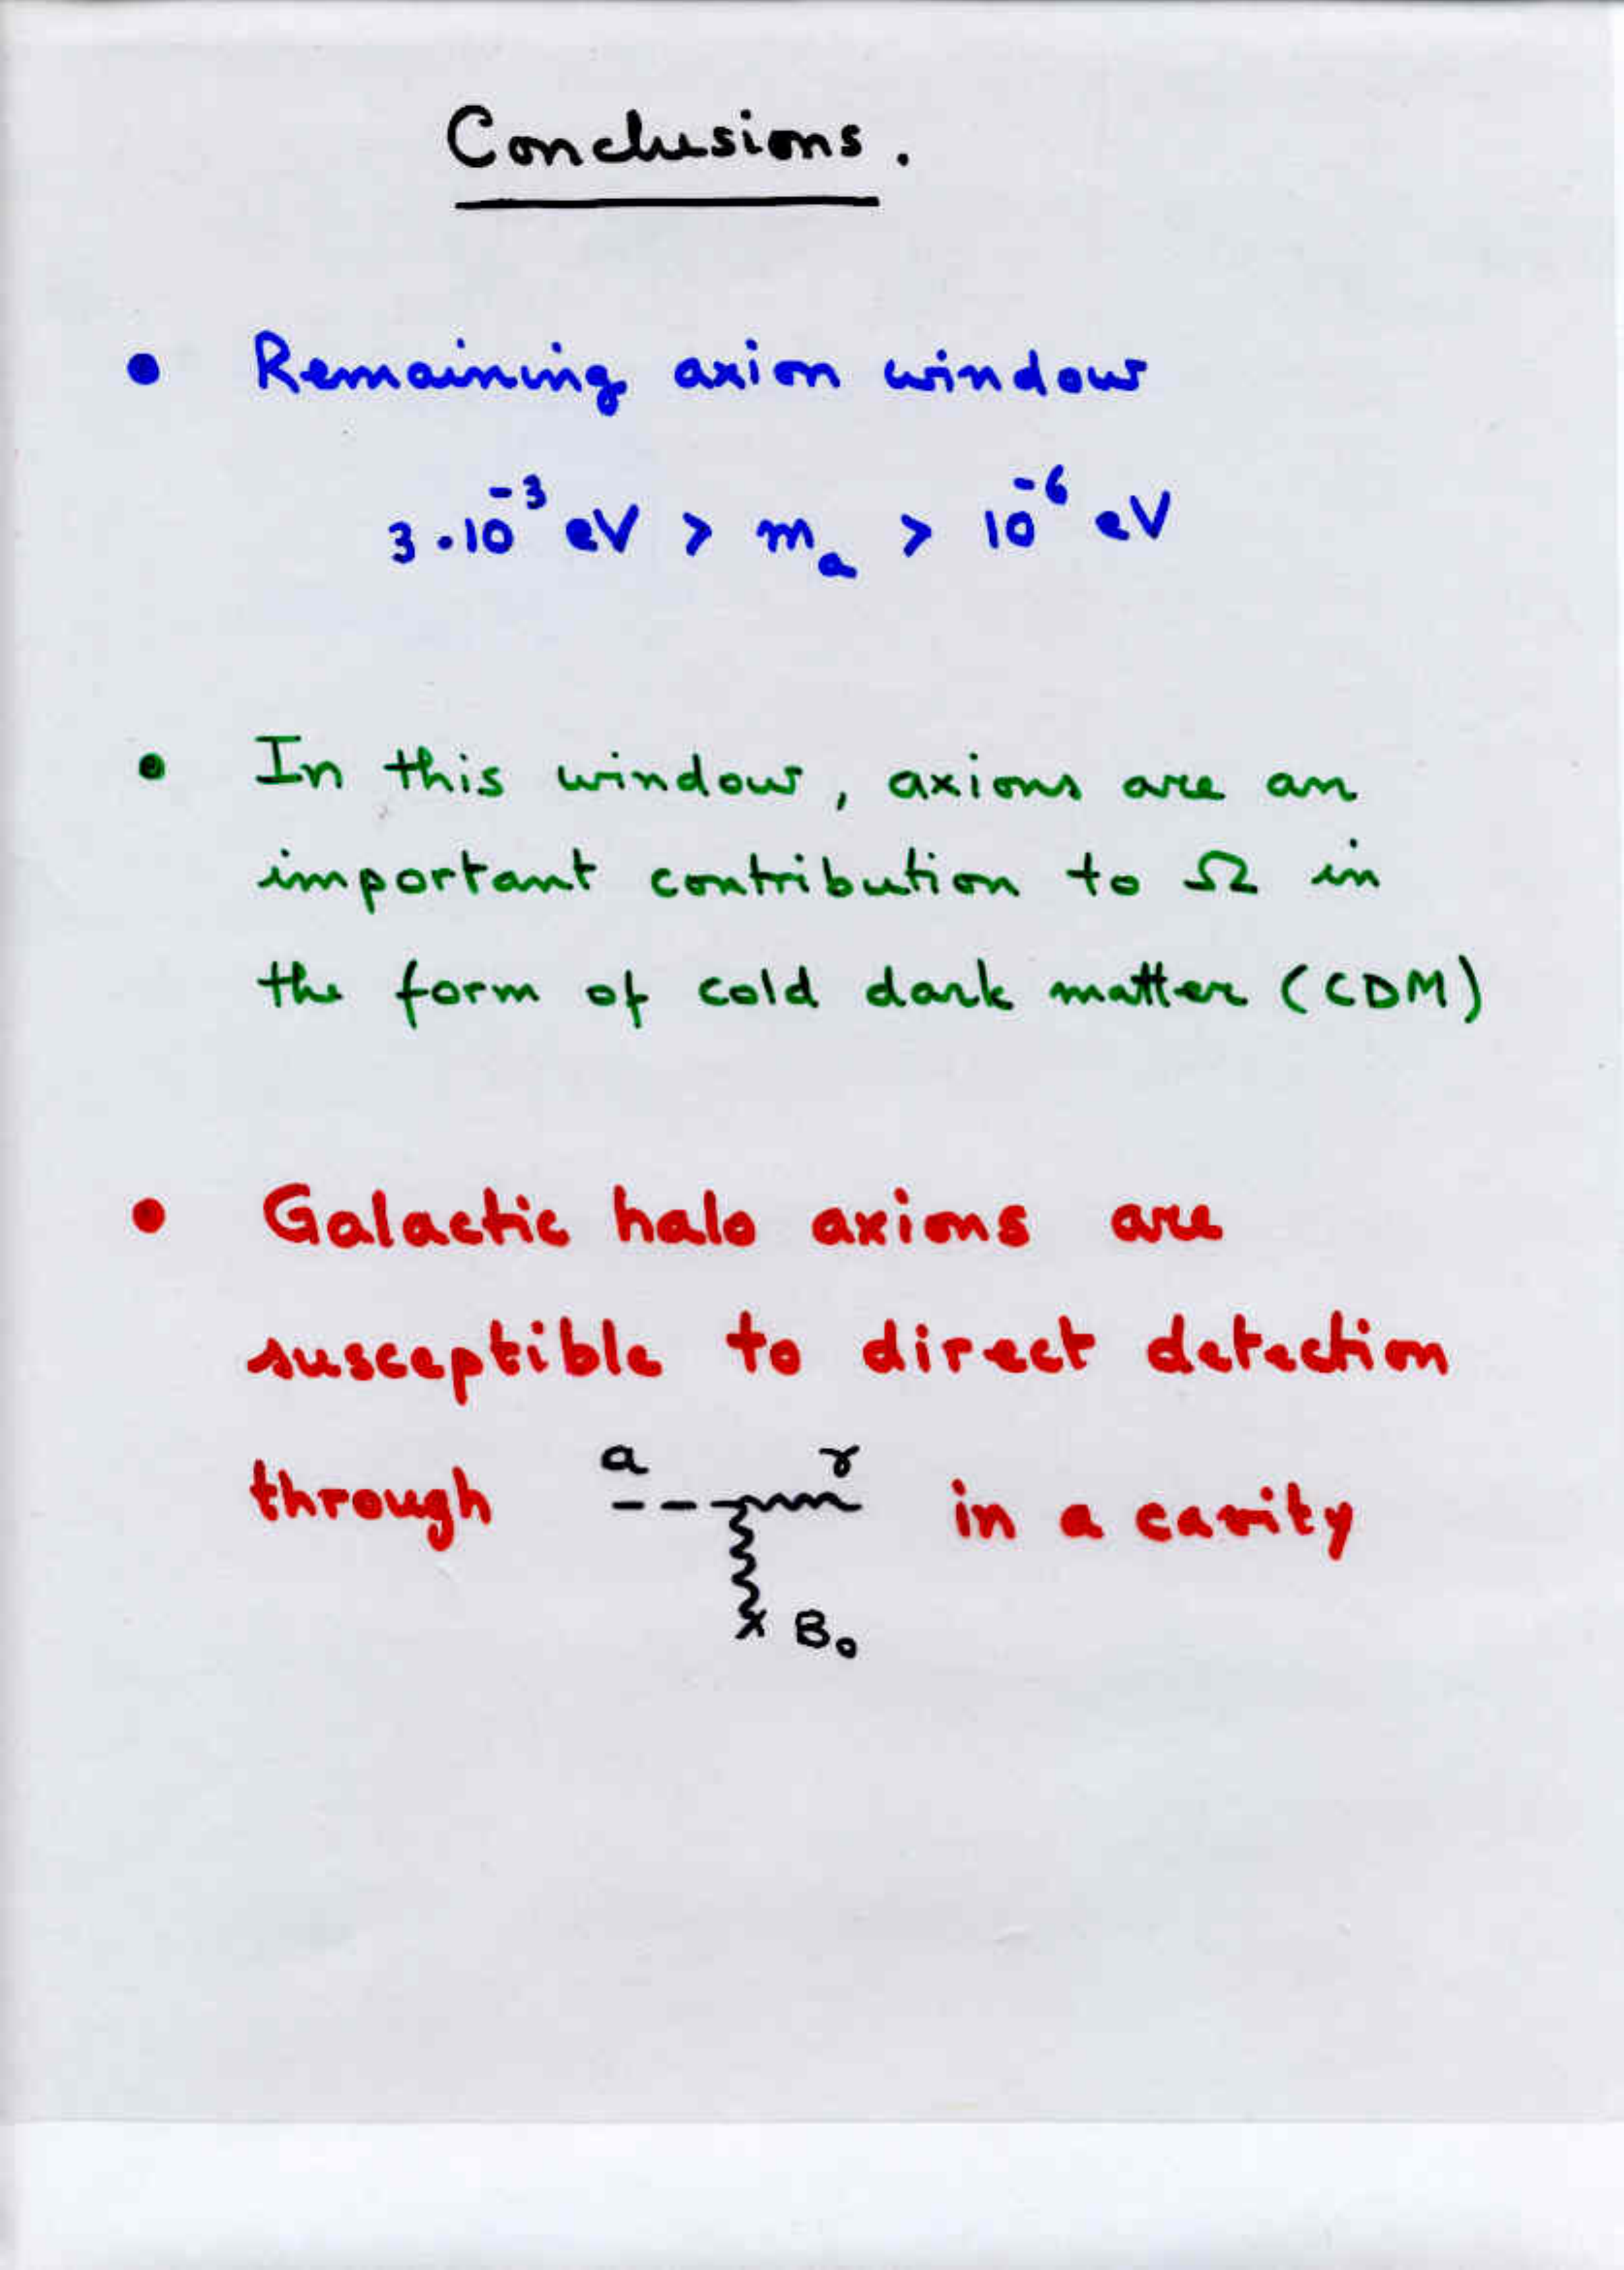 Conclusions.
• Remaining axion window
3·10⁻³ eV > mₐ > 10⁻⁶ eV
• In this window, axions are an
important contribution to Ω in
the form of cold dark matter (CDM)
• Galactic halo axions are
susceptible to direct detection
a γ
through in a cavity
B₀